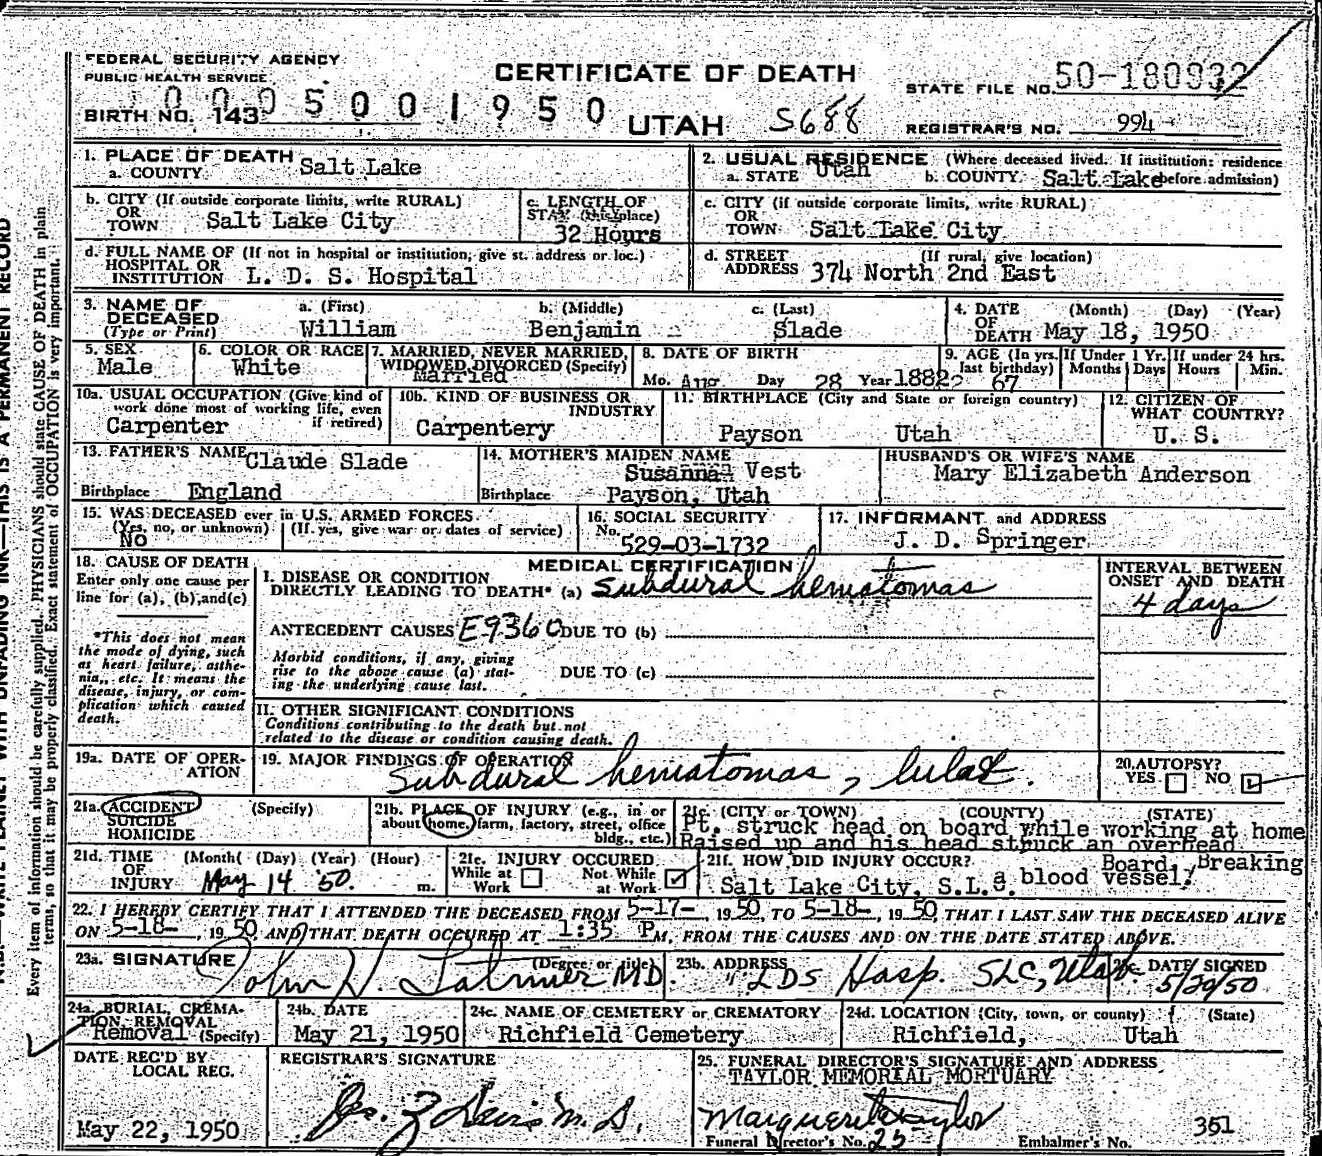 FEDERAL SECURITY AGENCY
PUBLIC HEALTH SERVICE
CERTIFICATE OF DEATH
STATE FILE NO. 50-180932
0 0 0 5 0 0 1 9 5 0
BIRTH NO. 143
UTAH S688
REGISTRAR'S NO. 994
1. PLACE OF DEATH
a. COUNTY Salt Lake
2. USUAL RESIDENCE (Where deceased lived. If institution: residence before admission)
a. STATE Utah b. COUNTY Salt Lake
b. CITY (If outside corporate limits, write RURAL)
OR
TOWN Salt Lake City
c. LENGTH OF
STAY (this place)
32 Hours
c. CITY (if outside corporate limits, write RURAL)
OR
TOWN Salt Lake City
d. FULL NAME OF (If not in hospital or institution, give st. address or loc.)
HOSPITAL OR
INSTITUTION L. D. S. Hospital
d. STREET (If rural, give location)
ADDRESS 374 North 2nd East
3. NAME OF DECEASED (Type or Print)
a. (First) b. (Middle) c. (Last)
William Benjamin Slade
4. DATE OF DEATH (Month) (Day) (Year)
May 18, 1950
5. SEX
Male
6. COLOR OR RACE
White
7. MARRIED, NEVER MARRIED,
WIDOWED, DIVORCED (Specify)
Married
8. DATE OF BIRTH
Mo. Aug Day 28 Year 1882
9. AGE (In yrs. last birthday)
67
If Under 1 Yr. Months Days
If under 24 hrs. Hours Min.
10a. USUAL OCCUPATION (Give kind of
work done most of working life, even
if retired)
Carpenter
10b. KIND OF BUSINESS OR
INDUSTRY
Carpentery
11. BIRTHPLACE (City and State or foreign country)
Payson Utah
12. CITIZEN OF
WHAT COUNTRY?
U. S.
13. FATHER'S NAME Claude Slade
Birthplace England
14. MOTHER'S MAIDEN NAME
Susanna Vest
Birthplace Payson, Utah
HUSBAND'S OR WIFE'S NAME
Mary Elizabeth Anderson
15. WAS DECEASED ever in U.S. ARMED FORCES
(Yes, no, or unknown) (If yes, give war or dates of service)
No
16. SOCIAL SECURITY
No.
529-03-1732
17. INFORMANT and ADDRESS
J. D. Springer
18. CAUSE OF DEATH
Enter only one cause per
line for (a), (b), and (c)
*This does not mean
the mode of dying, such
as heart failure, asthe-
nia, etc. It means the
disease, injury, or com-
plication which caused
death.
MEDICAL CERTIFICATION
I. DISEASE OR CONDITION
DIRECTLY LEADING TO DEATH* (a) subdural hematomas
INTERVAL BETWEEN
ONSET AND DEATH
4 days
ANTECEDENT CAUSES E9360 DUE TO (b)
Morbid conditions, if any, giving
rise to the above cause (a) stat-
ing the underlying cause last.
DUE TO (c)
II. OTHER SIGNIFICANT CONDITIONS
Conditions contributing to the death but not
related to the disease or condition causing death.
19a. DATE OF OPER-
ATION
19. MAJOR FINDINGS OF OPERATION
Subdural hematomas,
20. AUTOPSY?
YES NO
21a. ACCIDENT (Specify)
SUICIDE
HOMICIDE
21b. PLACE OF INJURY (e.g., in or
about home, farm, factory, street, office
bldg., etc.)
21c. (CITY or TOWN) (COUNTY) (STATE)
Pt. struck head on board while working at home
Raised up and his head struck an overhead
21d. TIME OF INJURY (Month) (Day) (Year) (Hour)
May 14 '50 m.
21e. INJURY OCCURED
While at Work Not While at Work
21f. HOW DID INJURY OCCUR? Board, Breaking
a blood vessel.
Salt Lake City, S.L.
22. I HEREBY CERTIFY THAT I ATTENDED THE DECEASED FROM 5-17-, 1950, TO 5-18-, 1950, THAT I LAST SAW THE DECEASED ALIVE
ON 5-18-, 1950 AND THAT DEATH OCCURED AT 1:35 P M, FROM THE CAUSES AND ON THE DATE STATED ABOVE.
23a. SIGNATURE (Degree or title)
John H. Latimer MD.
23b. ADDRESS
LDS Hosp. SLC, Utah
23c. DATE SIGNED
5/20/50
24a. BURIAL, CREMA-
TION, REMOVAL
Removal (Specify)
24b. DATE
May 21, 1950
24c. NAME OF CEMETERY or CREMATORY
Richfield Cemetery
24d. LOCATION (City, town, or county) (State)
Richfield, Utah
DATE REC'D BY
LOCAL REG.
May 22, 1950
REGISTRAR'S SIGNATURE
25. FUNERAL DIRECTOR'S SIGNATURE AND ADDRESS
TAYLOR MEMORIAL MORTUARY
Marguerite Taylor
Funeral Director's No. 25
Embalmer's No. 351
Every item of information should be carefully supplied. PHYSICIANS should state CAUSE OF DEATH in plain
terms, so that it may be properly classified. Exact statement of OCCUPATION is very important.
WRITE PLAINLY WITH UNFADING INK—THIS IS A PERMANENT RECORD